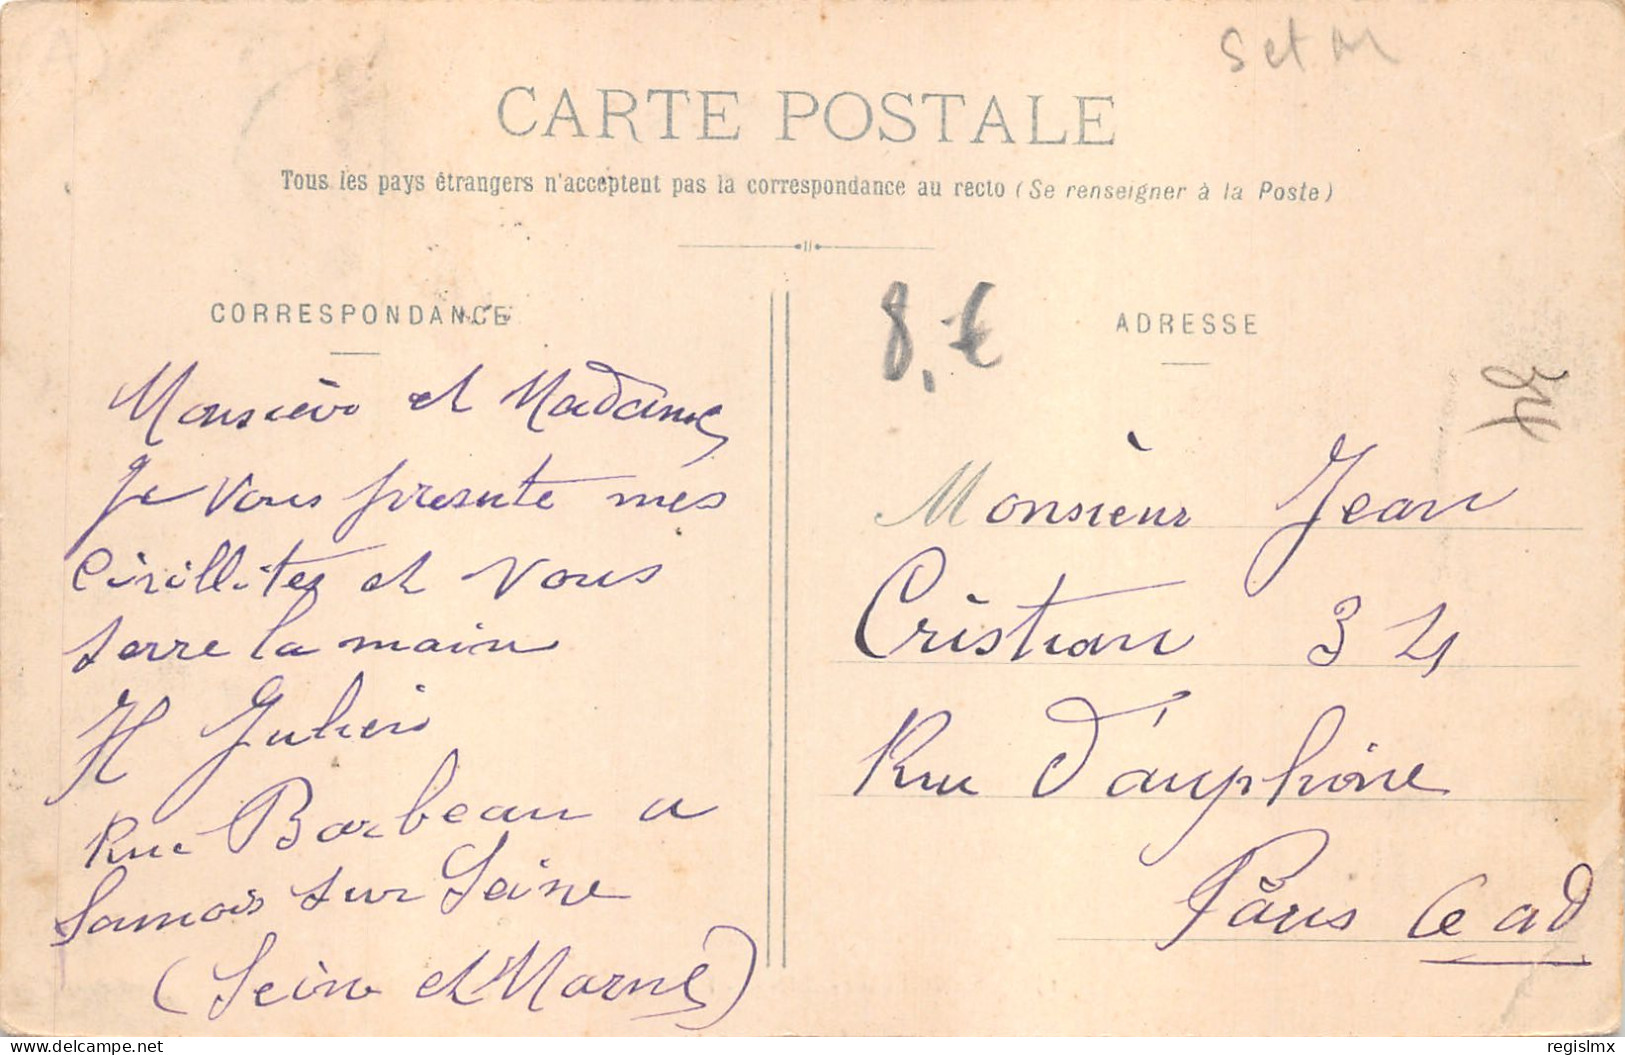 Set M
CARTE POSTALE
Tous les pays étrangers n'acceptent pas la correspondance au recto (Se renseigner à la Poste)
CORRESPONDANCE
Monsieur et Madame
Je vous presente mes
Civillites et vous
serre la main
H Julien
Rue Barbeau a
Samois sur Seine
(Seine et Marne)
8,-€
ADRESSE
Monsieur Jean
Cristian 34
Rue D'auphine
Paris 6e ad
delcampe.net
regislmx